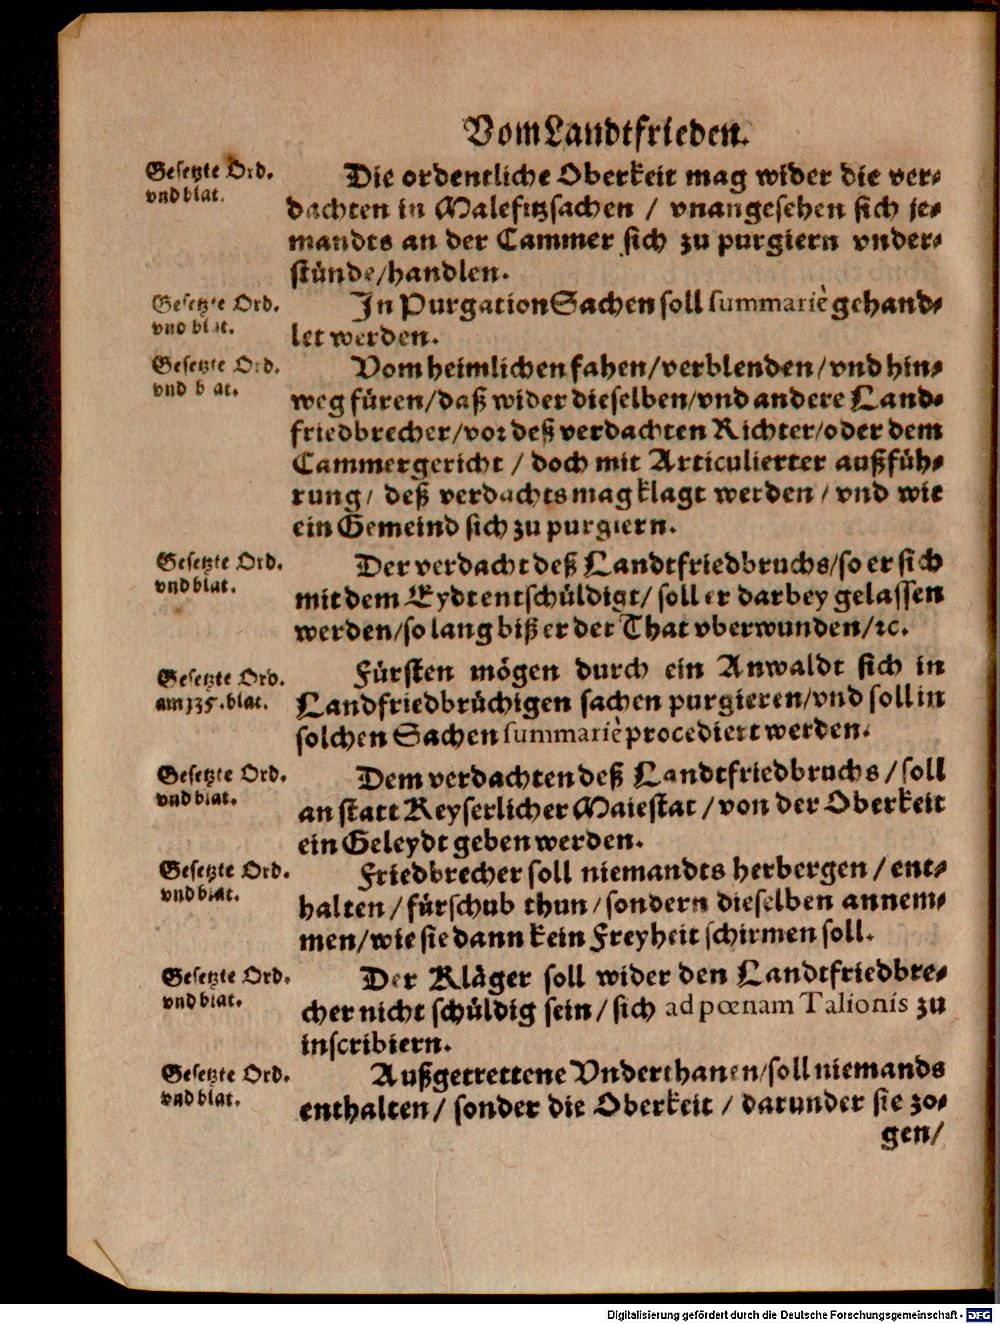 Vom Landtfrieden.
Gesetzte Ord.
vnd blat.
Die ordentliche Oberkeit mag wider die ver-
dachten in Malefitzsachen / vnangesehen sich je-
mandts an der Cammer sich zu purgiern vnder-
stünde/handlen.
Gesetzte Ord.
vnd blat.
In Purgation Sachen soll summariè gehand-
let werden.
Gesetzte Ord.
vnd blat.
Vom heimlichen fahen/verblenden/vnd hin-
weg füren/daß wider dieselben/vnd andere Land-
friedbrecher/vor deß verdachten Richter/oder dem
Cammergericht / doch mit Articulierter außfüh-
rung/ deß verdachts mag klagt werden / vnd wie
ein Gemeind sich zu purgiern.
Gesetzte Ord.
vnd blat.
Der verdacht deß Landtfriedbruchs/so er sich
mit dem Eydt entschüldigt/ soll er darbey gelassen
werden/so lang biß er der That vberwunden/ꝛc.
Gesetzte Ord.
am 135. blat.
Fürsten mögen durch ein Anwaldt sich in
Landfriedbrüchigen sachen purgieren/vnd soll in
solchen Sachen summariè procediert werden.
Gesetzte Ord.
vnd blat.
Dem verdachten deß Landtfriedbruchs / soll
an statt Keyserlicher Maiestat / von der Oberkeit
ein Geleydt geben werden.
Gesetzte Ord.
vnd blat.
Friedbrecher soll niemandts herbergen / ent-
halten / fürschub thun / sondern dieselben annem-
men/wie sie dann kein Freyheit schirmen soll.
Gesetzte Ord.
vnd blat.
Der Kläger soll wider den Landtfriedbre-
cher nicht schüldig sein / sich ad pœnam Talionis zu
inscribiern.
Gesetzte Ord.
vnd blat.
Außgetrettene Vnderthanen/soll niemands
enthalten/ sonder die Oberkeit / darunder sie zo-
gen/
Digitalisierung gefördert durch die Deutsche Forschungsgemeinschaft - DFG